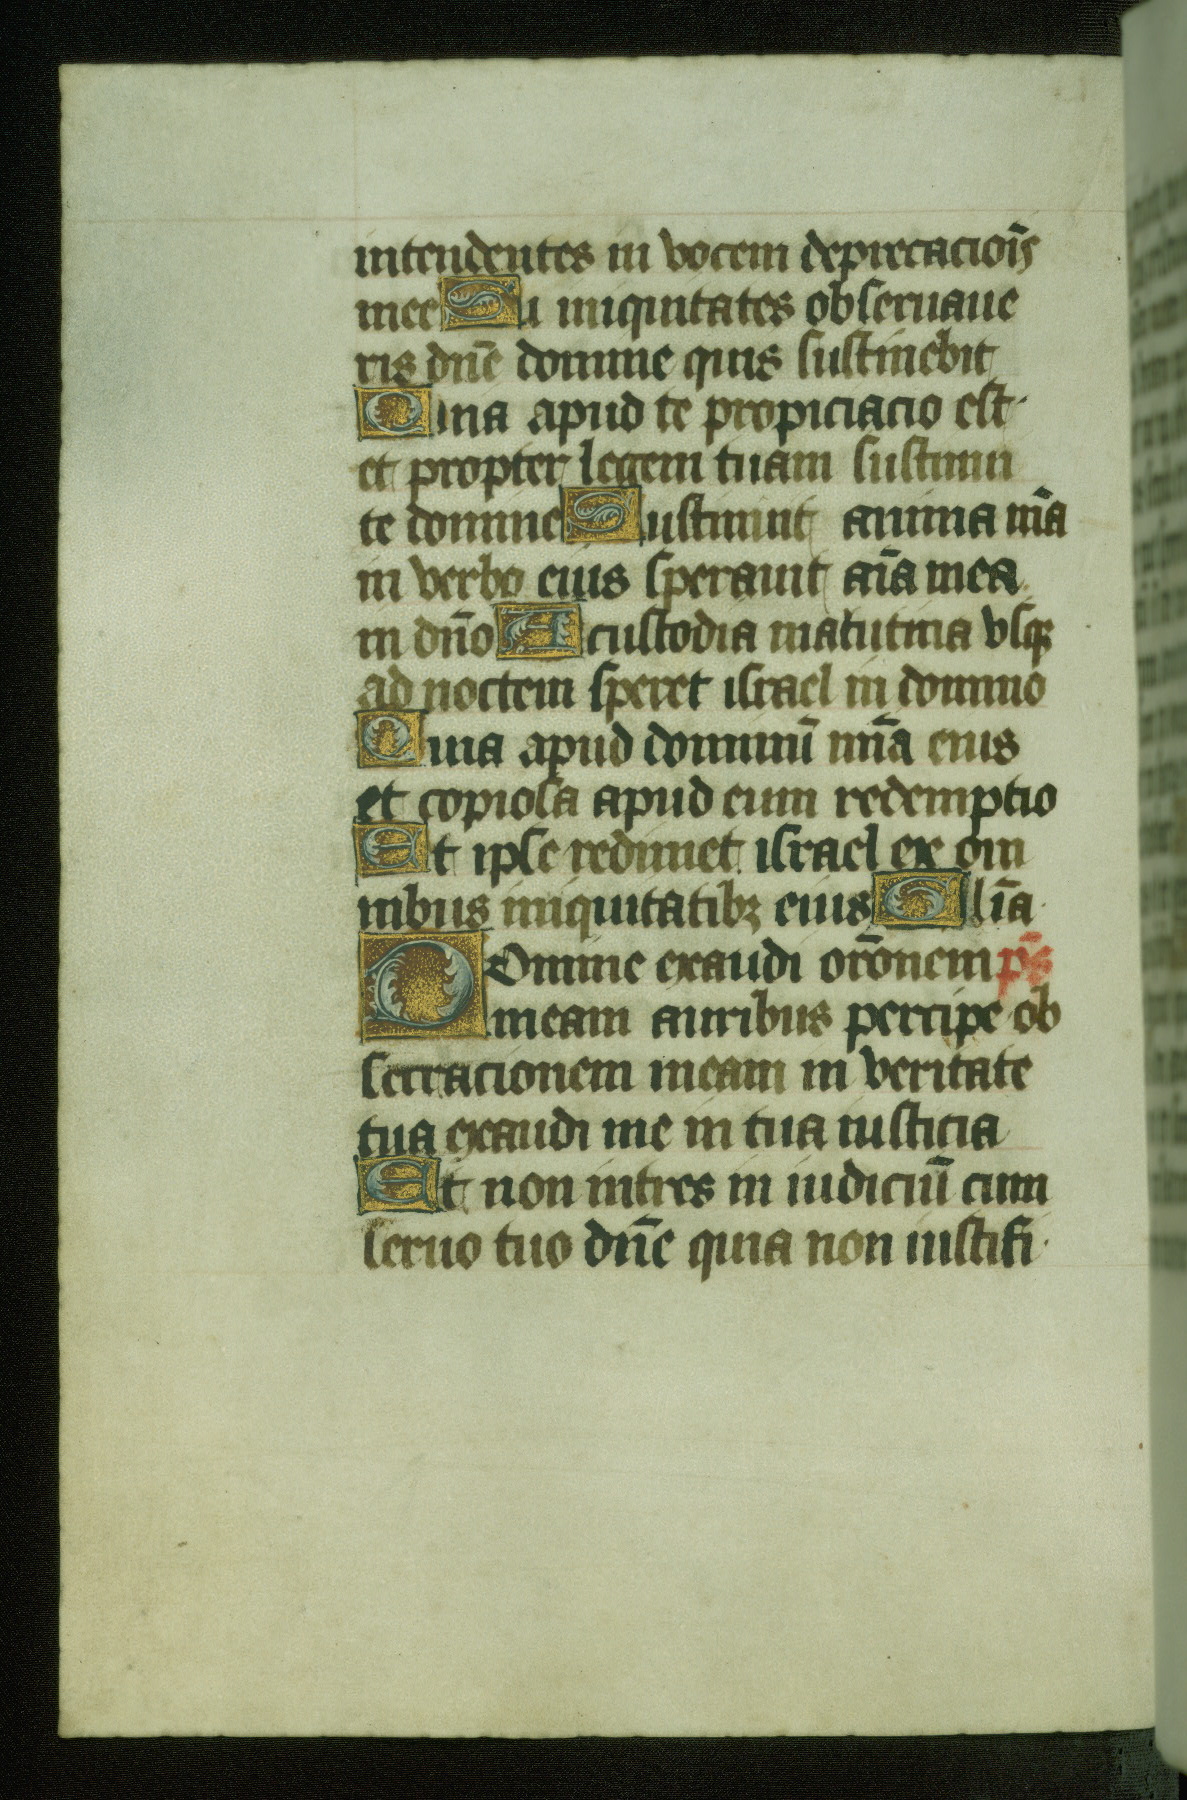 intendentes in vocem deprecacioīs
mee Si iniquitates obseruaue
ris dn̄e domine quis sustinebit
Quia apud te propiciacio est
et propter legem tuam sustinui
te domine Sustinuit anima m̄a
in verbo eius sperauit aīa mea
in dn̄o A custodia matutina vsqꝫ
ad noctem speret israel in domino
Quia apud dominū mīa eius
et copiosa apud eum redemptio
Et ipse redimet israel ex om
nibus iniquitatibꝫ eius Glīa
Domine exaudi orōnem pˢ
meam auribus percipe ob
secracionem meam in veritate
tua exaudi me in tua iusticia
Et non intres in iudiciū cum
seruo tuo dn̄e quia non iustifi